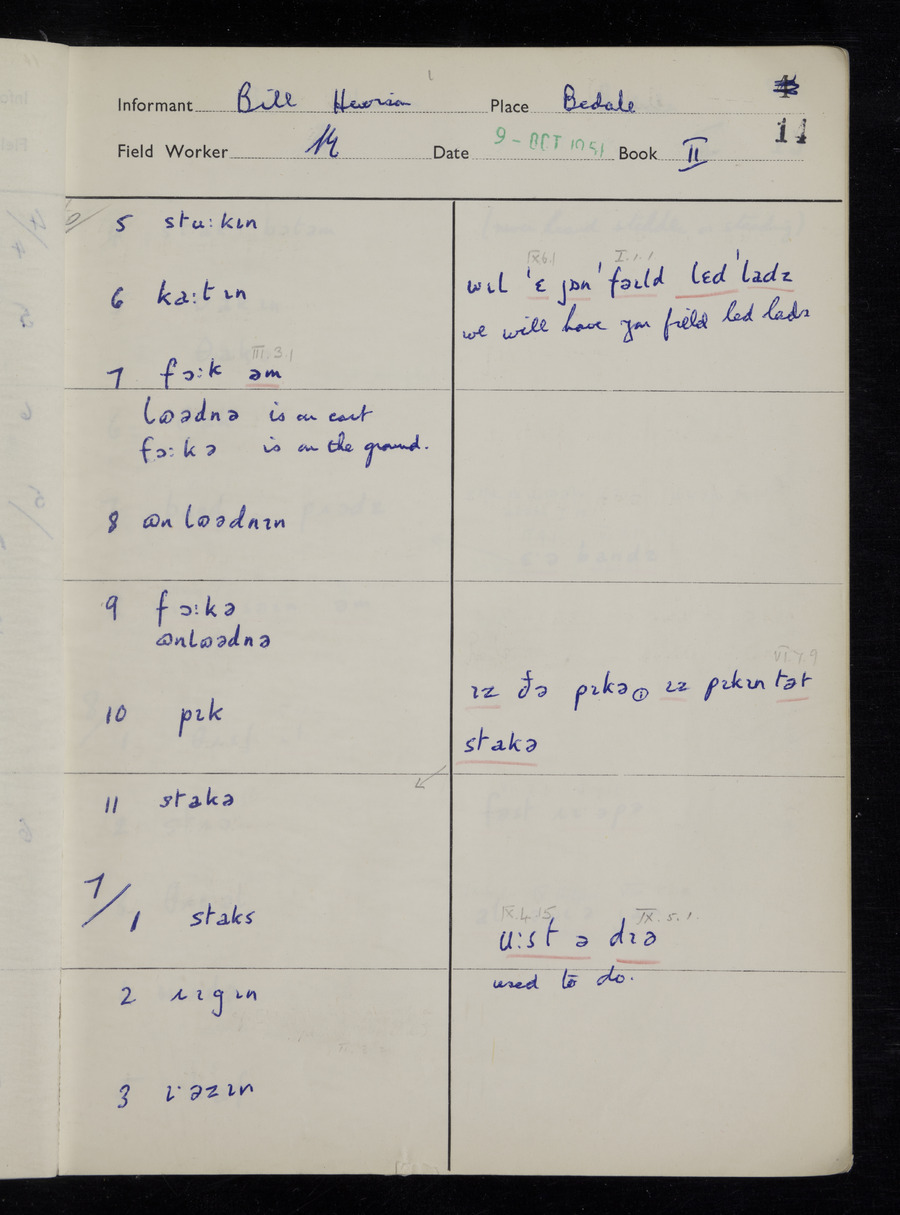 Informant Bill Place Bedale
11
Field Worker Date 9 - OCT 1951 Book II
6/
5 stu:kɪn
6 ka:tɪn
III.3.1
7 fɔ:k əm
lɷədnə is on cart
fɔ:kə is on the ground.
8 ɷnlɷədnɪn
9 fɔ:kə
ɷnlɷədnə
10 pɪk
11 stakə
7/1 staks
2 ɪɪgɪn
3 ɪ·əzɪn
IX.6.1 I.1.1
wɪl 'ɛ jɒn 'fəɪld lɛd 'ladz
we will have yon field led lads
VI.7.9
ɪz ðə pɪkə ① ɪz pɪkɪn tət
stakə
IX.4.15 IX.5.1.
u:st ə dɪə
used to do.